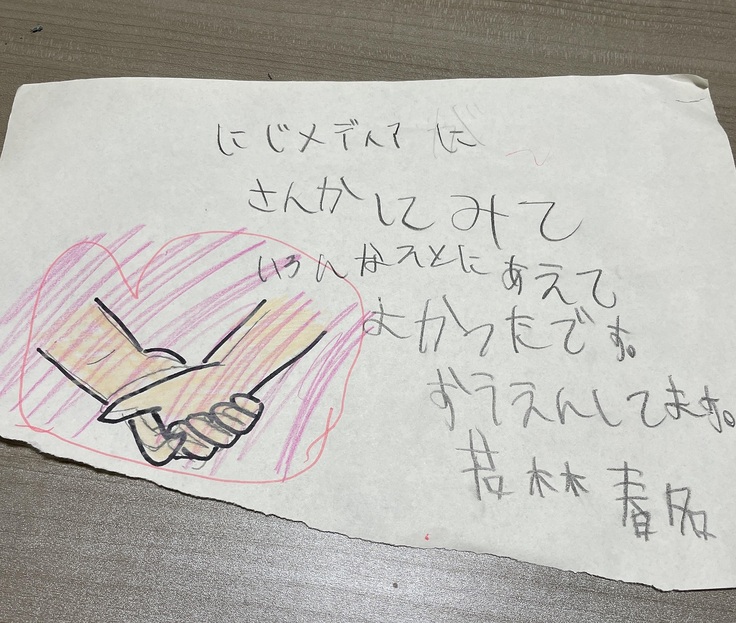 にじメディアに
さんかしてみて
いろんなひとにあえて
よかったです。
おうえんしてます。
若林春名